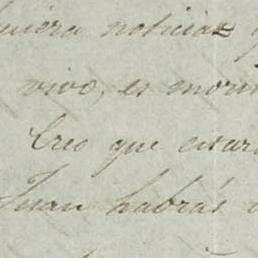 quiera noticias
vivo, es mori
Creo que estar
Juan habrás